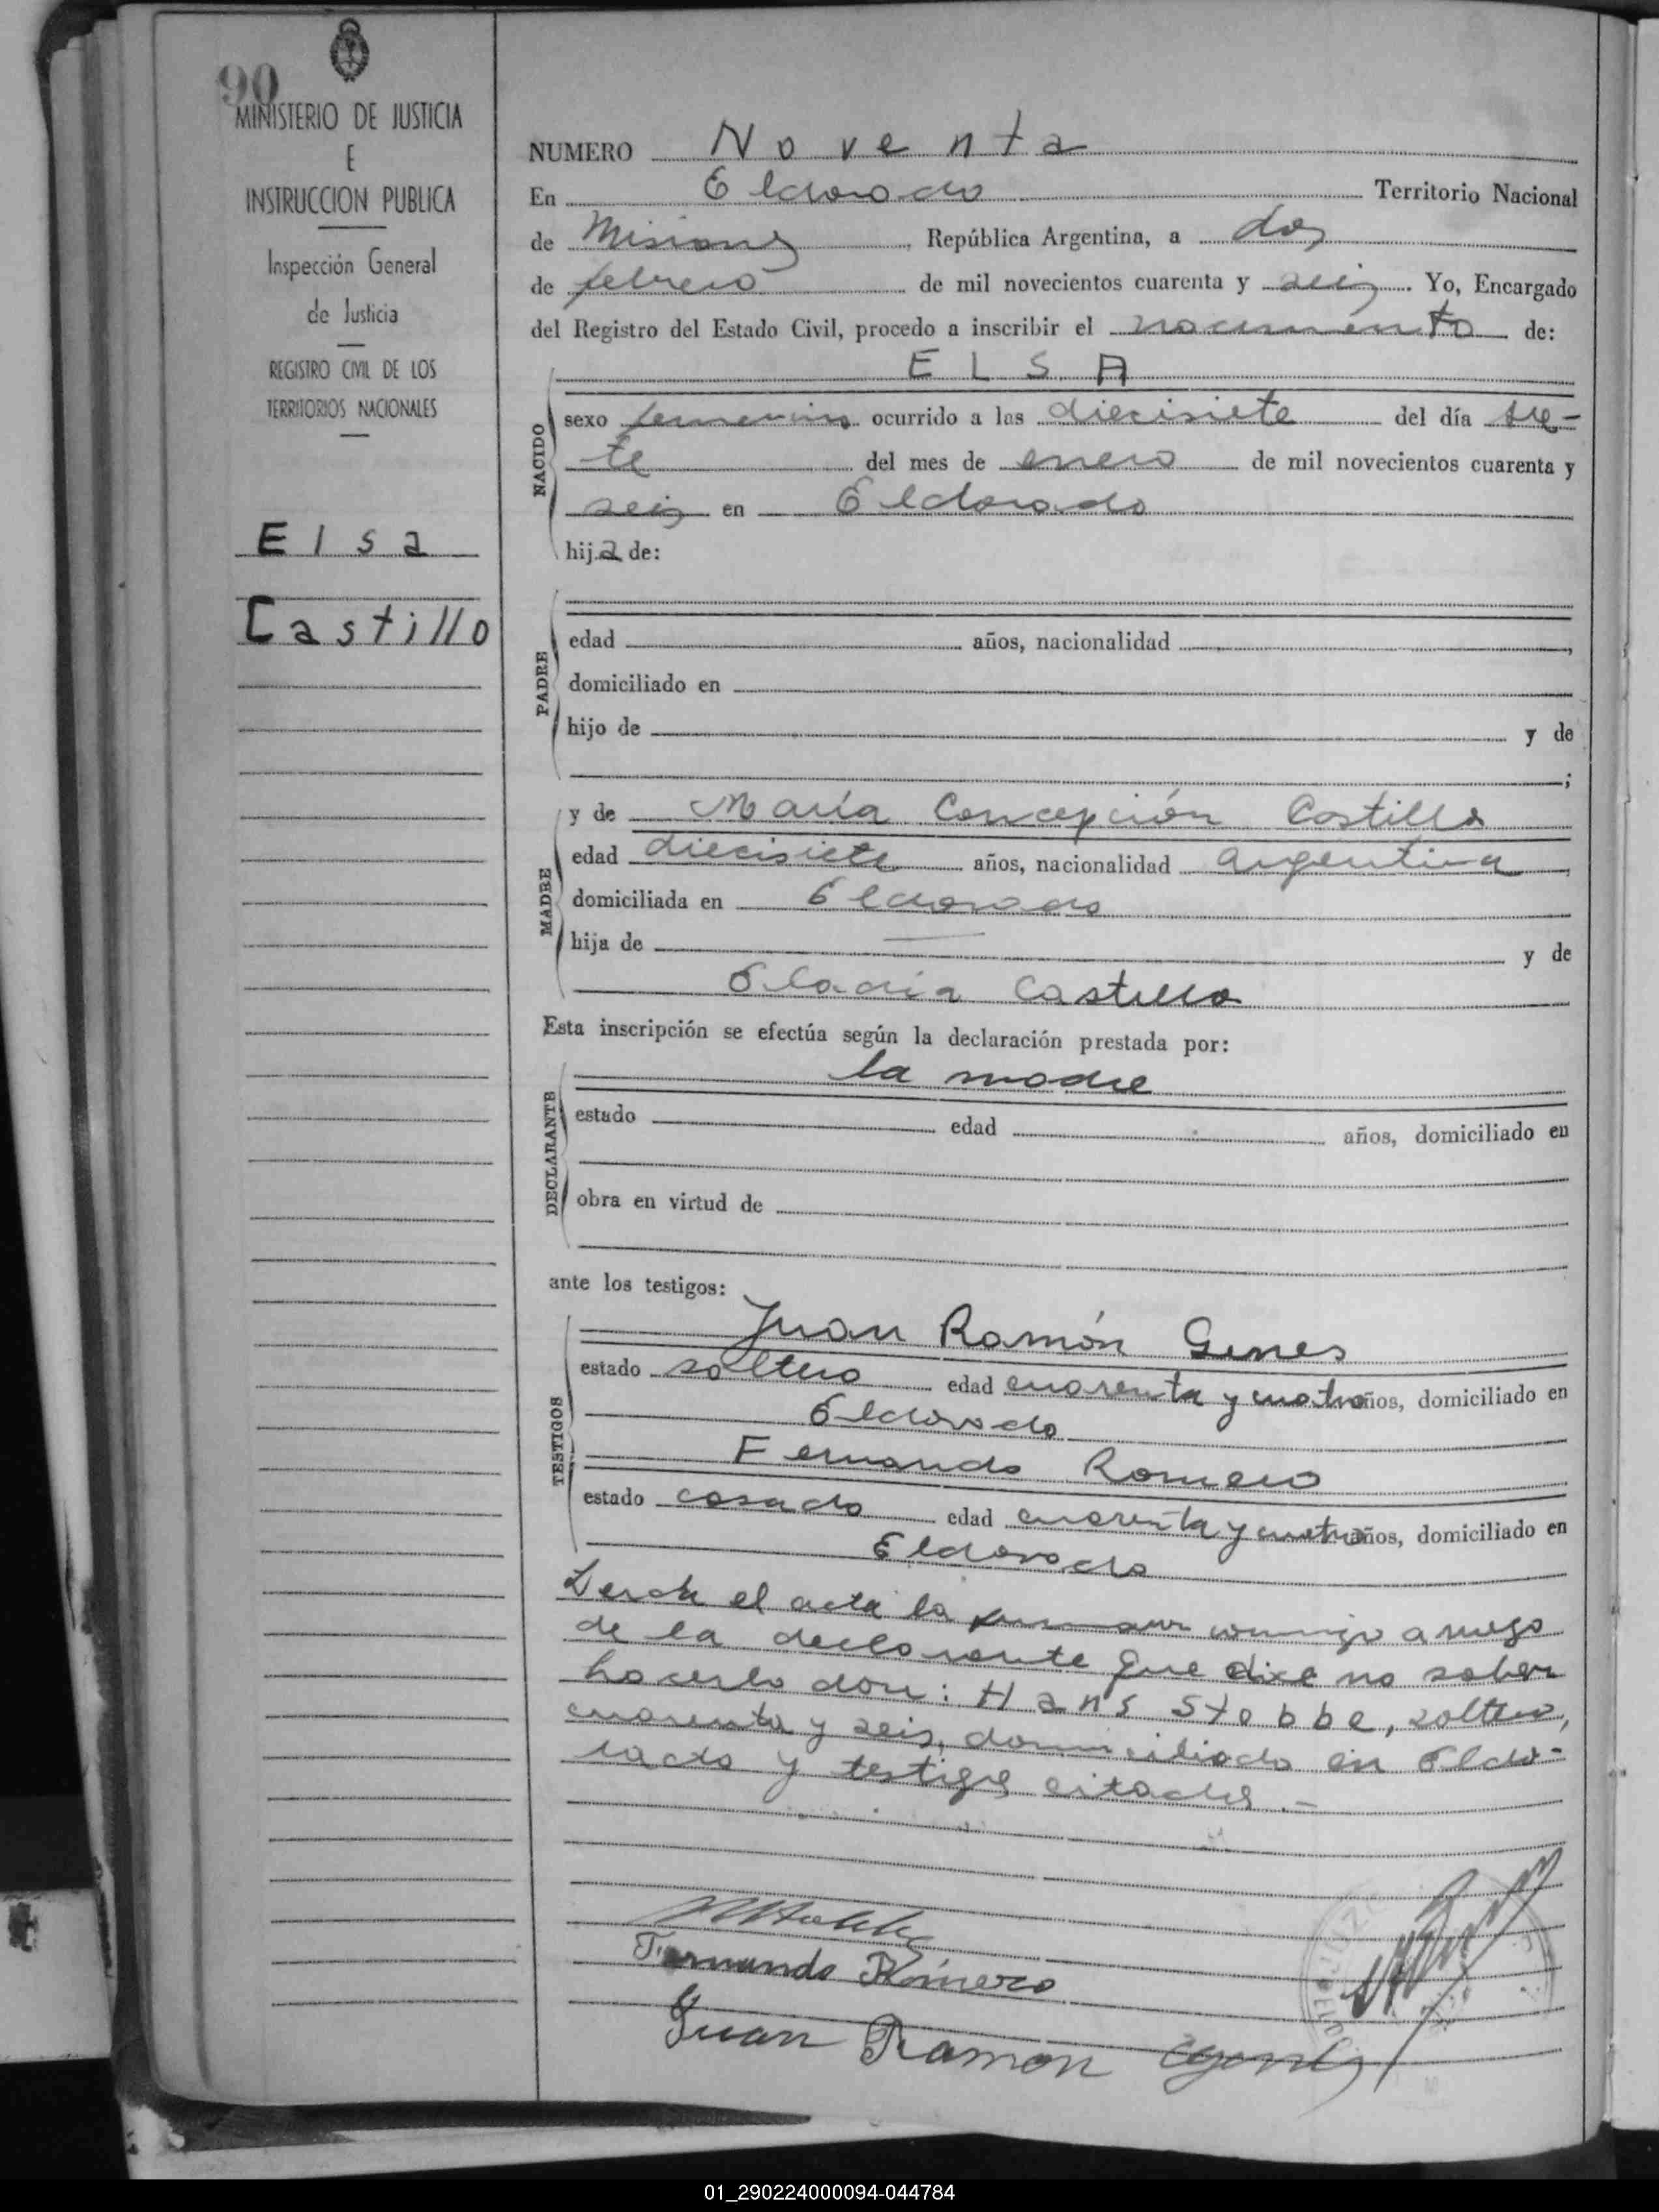 90
MINISTERIO DE JUSTICIA
E
INSTRUCCION PUBLICA
Inspección General
de Justicia
REGISTRO CIVIL DE LOS
TERRITORIOS NACIONALES
Elsa
Castillo
NUMERO Noventa
En Eldorado Territorio Nacional
de Misiones, República Argentina, a dos
de febrero de mil novecientos cuarenta y seis. Yo, Encargado
del Registro del Estado Civil, procedo a inscribir el nacimiento de:
ELSA
NACIDO
sexo femenino ocurrido a las diecisiete del día sie-
te del mes de enero de mil novecientos cuarenta y
seis en Eldorado
hija de:
PADRE
edad años, nacionalidad ,
domiciliado en
hijo de y de
;
MADRE
y de María Concepción Castillo
edad diecisiete años, nacionalidad argentina,
domiciliada en Eldorado
hija de — y de
Eladia Castillo
Esta inscripción se efectúa según la declaración prestada por:
la madre
DECLARANTE
estado edad años, domiciliado en
obra en virtud de
ante los testigos:
TESTIGOS
Juan Ramón Genes
estado soltero edad cuarenta y cuatro años, domiciliado en
Eldorado
Fernando Romero
estado casado edad cuarenta y cuatro años, domiciliado en
Eldorado
Leida el acta la firman conmigo a ruego
de la declarante que dice no saber
hacerlo don: Hans Stobbe, soltero,
cuarenta y seis, domiciliado en Eldo-
rado y testigos citados.—
Fernando Romero
Juan Ramon
01_290224000094-044784